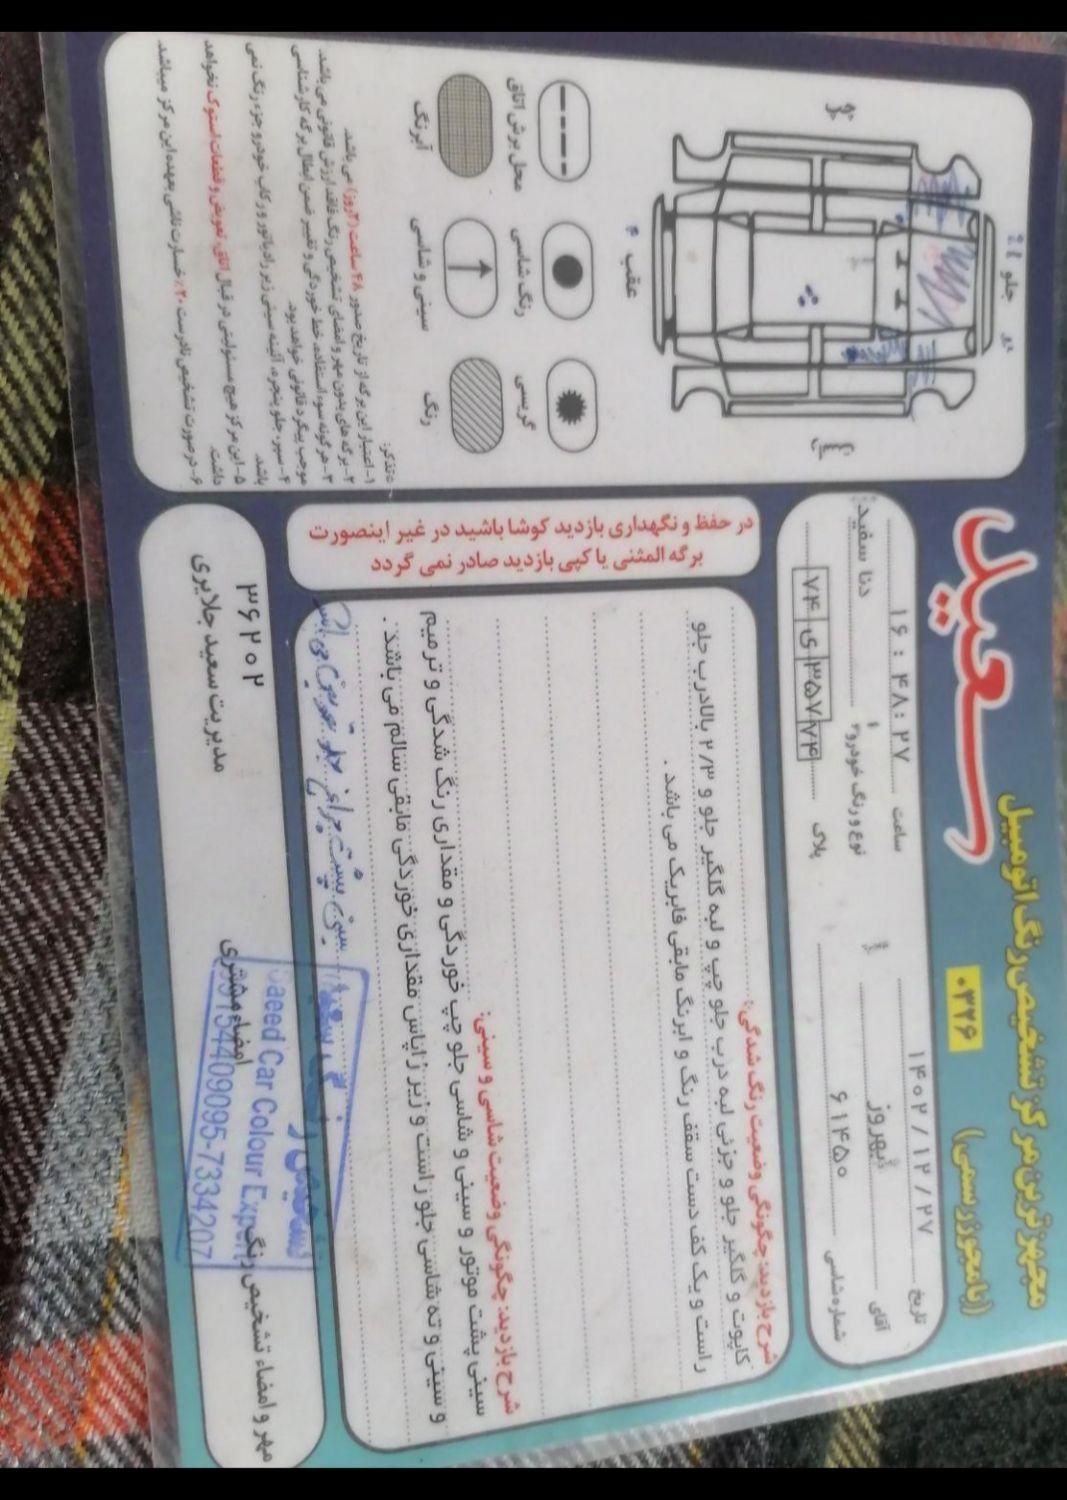 مجهزترین مرکز تشخیص رنگ اتومبیل
سعید
((با مجوز رسمی))
۰۳۲۶
تاریخ ۱۴۰۲/۱۲/۲۷
ساعت ۱۶:۴۸:۲۷
آقای بهروز
نوع و رنگ خودرو دنا سفید
شماره شاسی ۶۱۴۵۰
پلاک ۷۴ ۳۵۷ ی ۷۴
شرح بازدید: چگونگی وضعیت رنگ شدگی:
کاپوت و گلگیر جلو و جزئی لبه درب جلو چپ و لبه گلگیر جلو و ۲/۳ بالادرب جلو
راست و یک کف دست سقف رنگ و ابرنگ مابقی فابریک می باشد .
شرح بازدید: چگونگی وضعیت شاسی و سینی:
سینی پشت موتور و سینی و شاسی جلو چپ خوردگی و مقداری رنگ شدگی و ترمیم
و سینی و ته شاسی جلو راست و زیر زاپاس مقداری خوردگی مابقی سالم می باشد .
سینی پشت چراغ جلو تعویض می باشد
مهر و امضاء تشخیص رنگ
امضاء مشتری
۳۶۲۰۲
مدیریت سعید جلایری
Saeed Car Colour Expert
09154409095-7334207
در حفظ و نگهداری بازدید کوشا باشید در غیر اینصورت
برگه المثنی یا کپی بازدید صادر نمی گردد
جلو
عقب
محل برش اتاق
رنگ شاسی
گریسی
آبرنگ
سینی و شاسی
رنگ
تذکر:
۱- اعتبار این برگه از تاریخ صدور ۴۸ ساعت (۲روز) می باشد.
۲- برگه های بدون مهر و امضای تشخیص رنگ فاقد ارزش قانونی می باشد.
۳- هر گونه سوء استفاده، خط خوردگی و تغییر ضمن ابطال برگه کارشناسی
موجب پیگرد قانونی خواهد بود.
۴- سپر، جلو پنجره، آئینه سینی زیر رادیاتور و رکاب خودرو جزء رنگ نمی
باشد.
۵- این مرکز هیچ مسئولیتی در قبال اتاق تعویض و قطعات استوک نخواهد
داشت.
۶- در صورت تشخیص نادرست ۲۰٪ خسارت ناشی بعهده این مرکز میباشد.